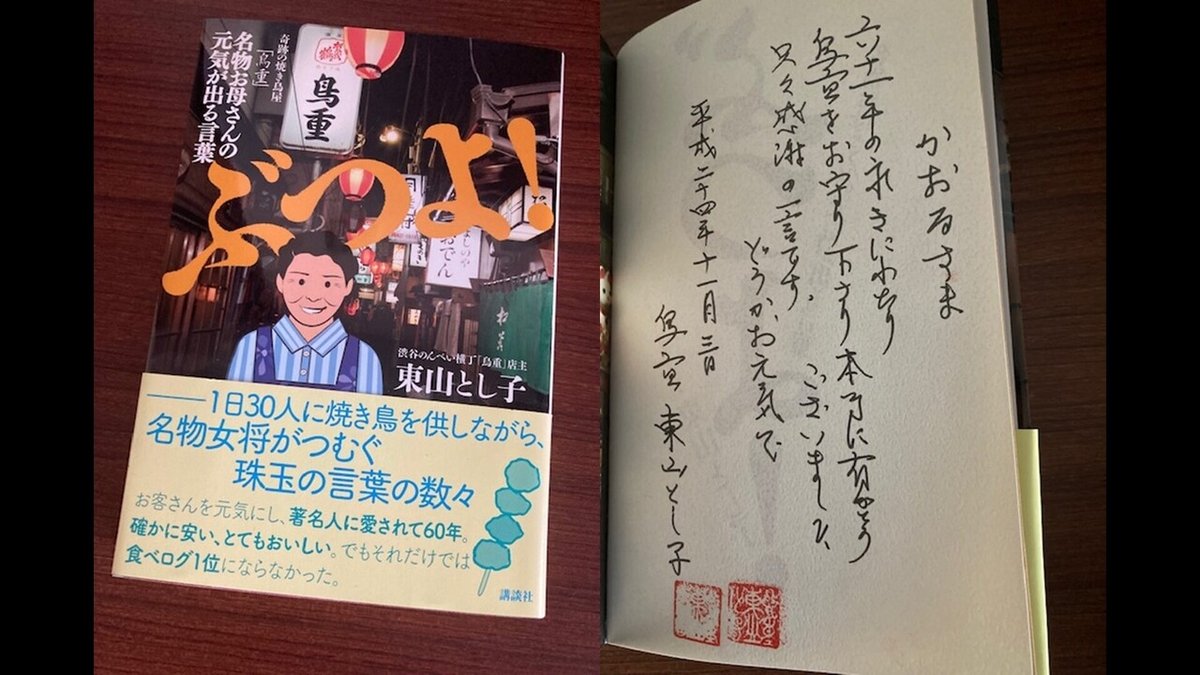 奇跡の焼き鳥屋
「鳥重」
名物お母さんの
元気が出る言葉
鳥重
ぶつよ!
おでん
渋谷のんべい横丁「鳥重」店主
東山とし子
――1日30人に焼き鳥を供しながら、
名物女将がつむぐ
珠玉の言葉の数々
お客さんを元気にし、著名人に愛されて60年。
確かに安い、とてもおいしい。でもそれだけでは
食べログ1位にならなかった。
講談社
かおるさま
六十一年の永きにわたり
鳥重をお守り下さり本当に有がとう
ございました、
只々感謝の一言です。
どうかお元気で
平成二十四年十一月三日
鳥重 東山とし子